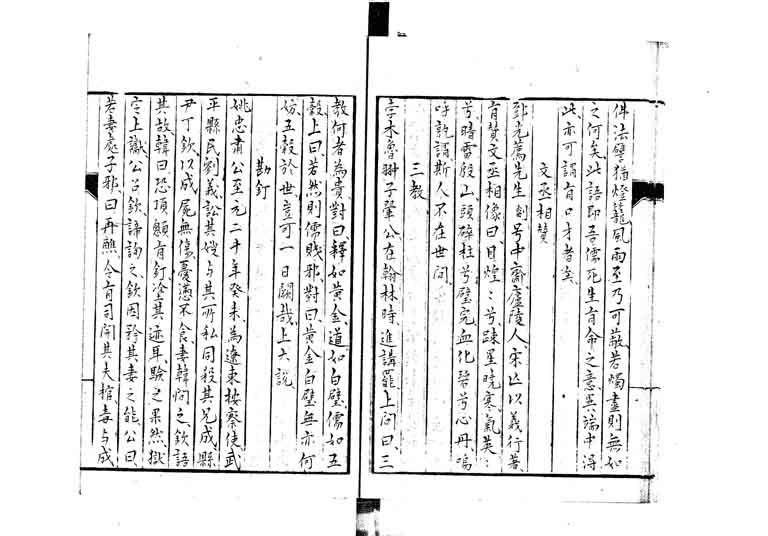 佛法譬猶燈籠風雨至乃可蔽若燭盡則無如
之何矣此語即吾儒死生有命之意異端中得
此亦可謂有口才者矣
文丞相贊
鄧光薦先生剡号中齋廬陵人宋亡以義行著
有贊文丞相像曰目煌〻兮踈星曉寒氣英〻
兮晴雷殷山頭碎柱兮璧完血化碧兮心丹嗚
呼孰謂斯人不在世間
三教
孛朮魯翀子翬公在翰林時進講罷上問曰三
教何者為貴對曰釋如黃金道如白璧儒如五
穀上曰若然則儒賤邪對曰黃金白璧無亦何
妨五穀於世豈可一日闕哉上大說
勘釘
姚忠肅公至元二十年癸未為遼東按察使武
平縣民劉義訟其嫂与其所私同殺其兄成縣
尹丁欽以成屍無傷憂懣不食妻韓問之欽語
其故韓曰恐頂顖有釘塗其迹耳驗之果然獄
定上讞公召欽諦詢之欽因矜其妻之能公曰
若妻處子邪曰再醮令有司開其夫棺毒与成